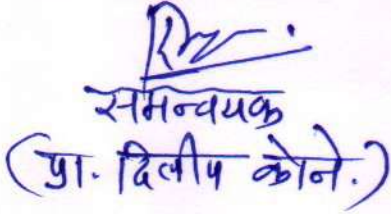 समन्वयक
(प्रा. दिलीप कोने.)